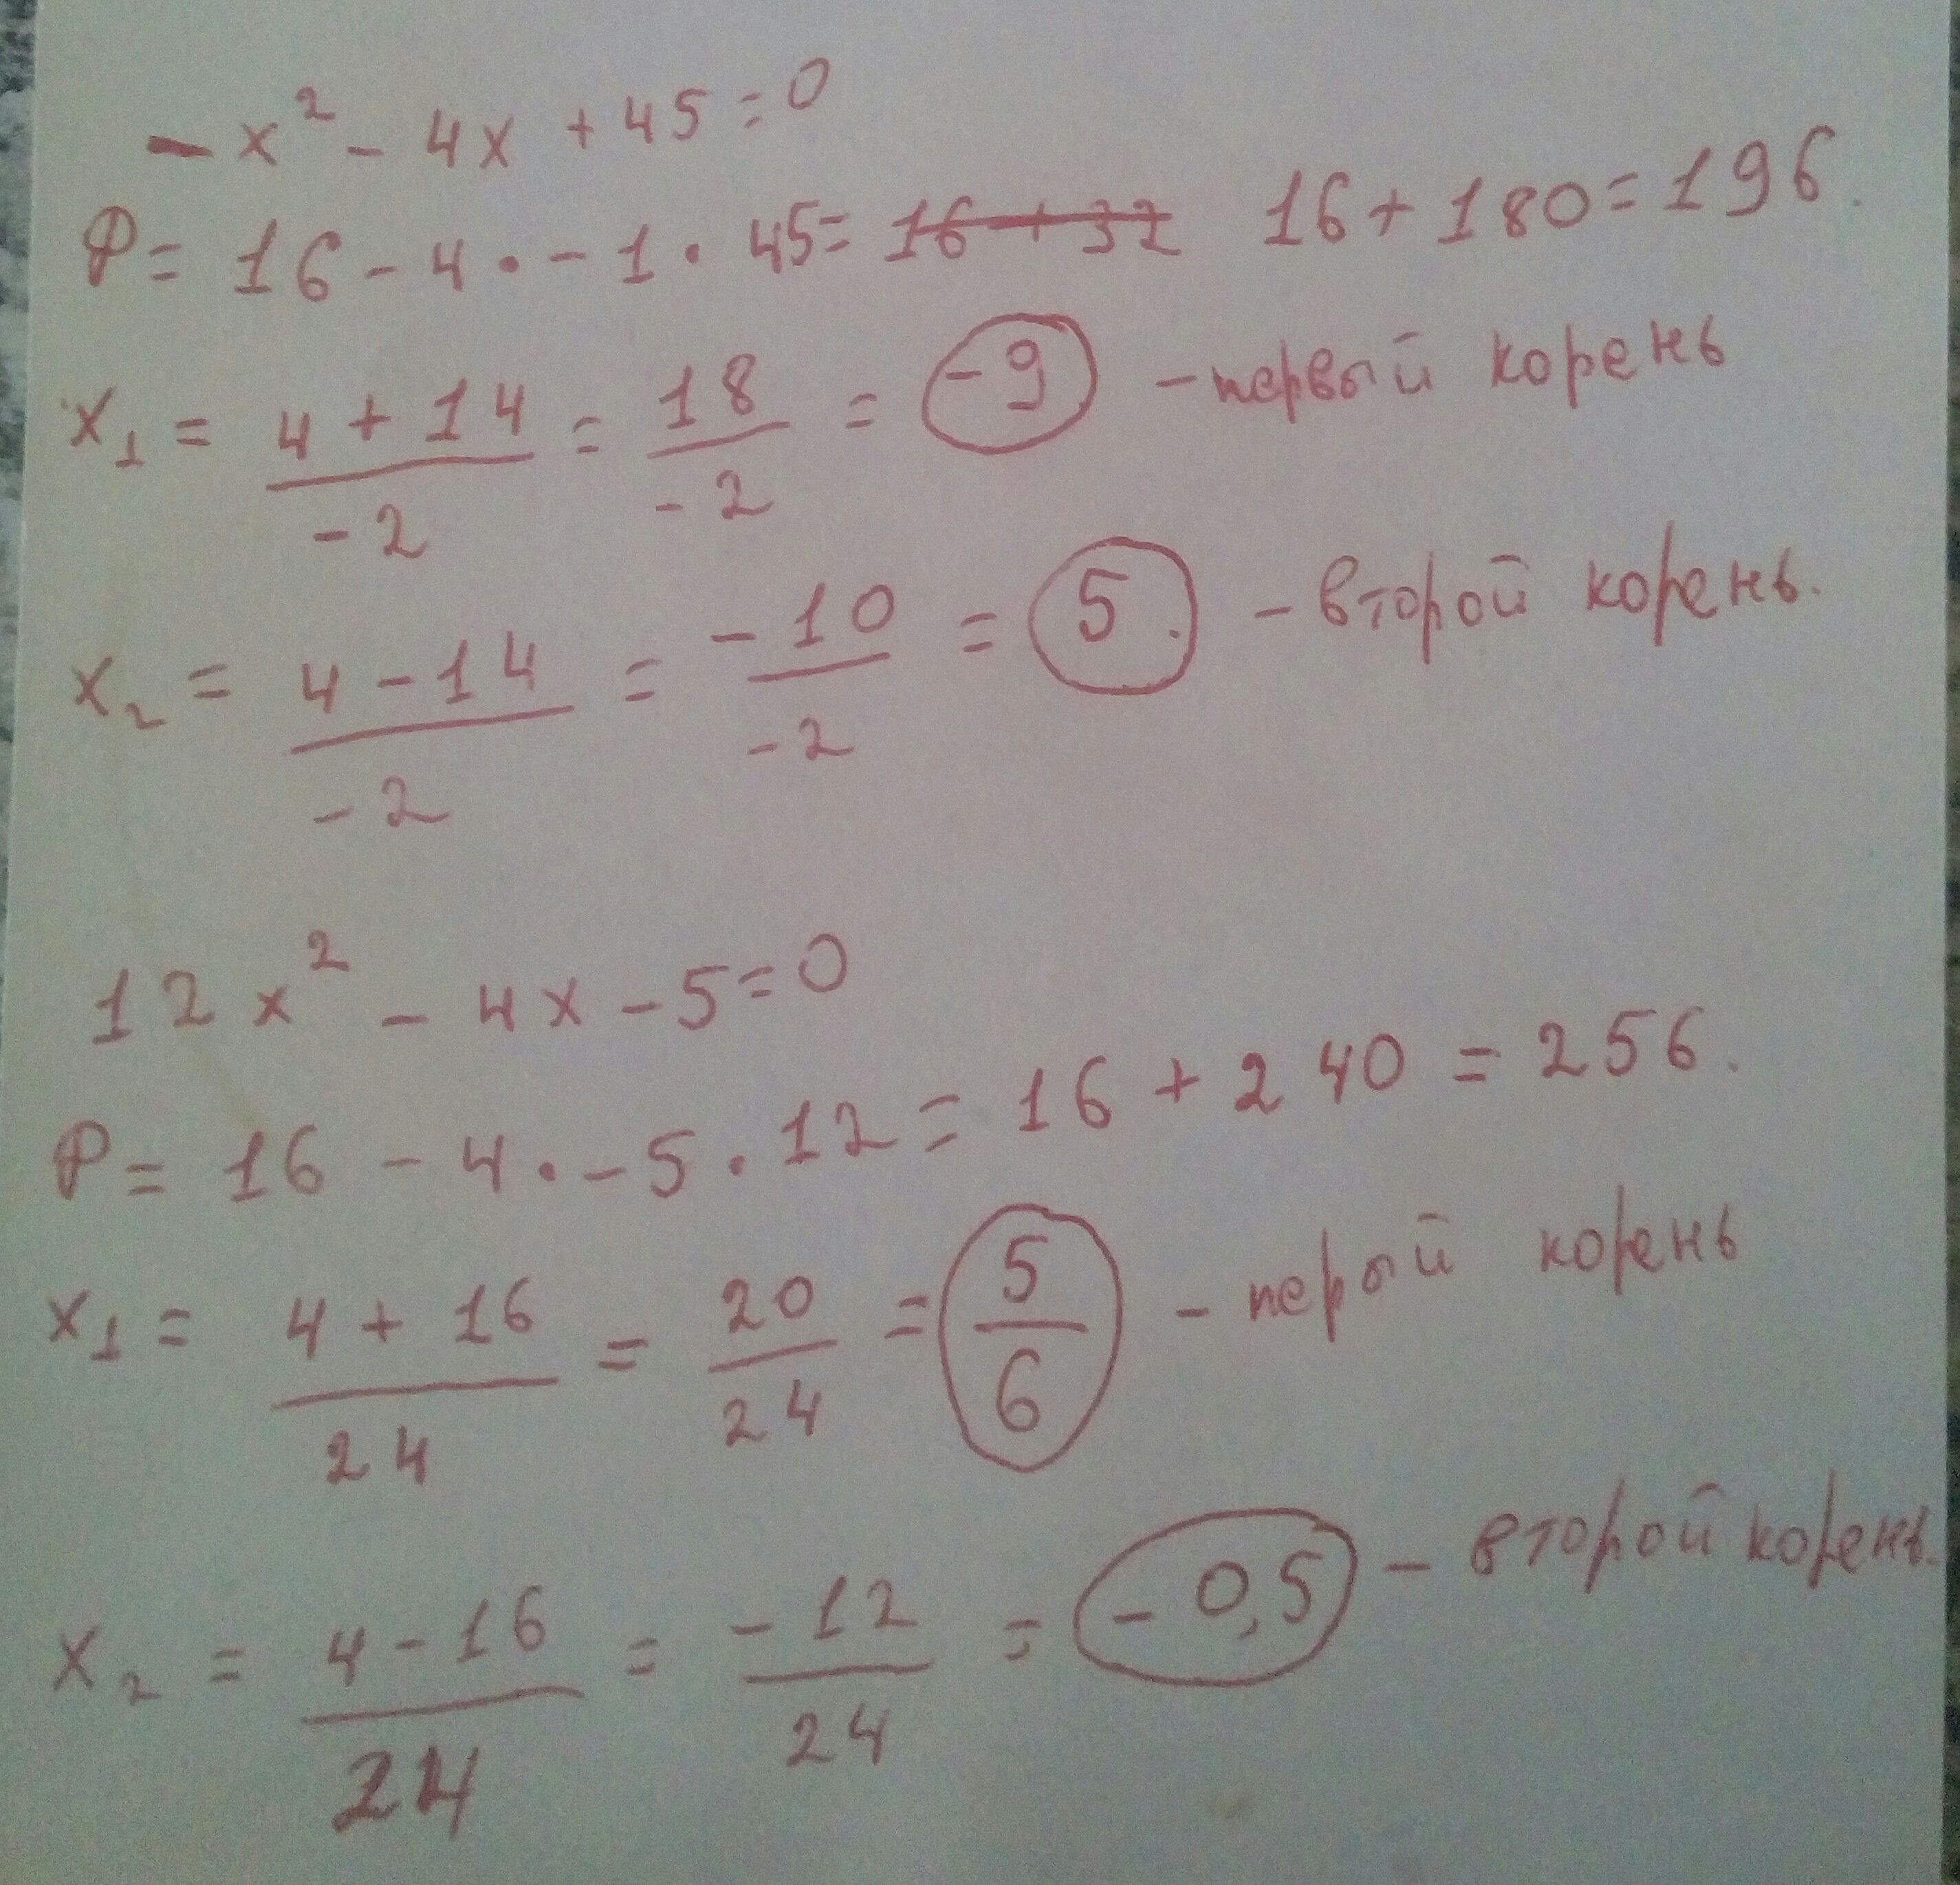 - x² - 4x + 45 = 0
D = 16 - 4 · - 1 · 45 = 16 + 32 16 + 180 = 196.
x₁ = (4 + 14)/(-2) = 18/(-2) = -9 - первый корень
x₂ = (4 - 14)/(-2) = -10/(-2) = 5. - второй корень.
12x² - 4x - 5 = 0
D = 16 - 4 · - 5 · 12 = 16 + 240 = 256.
x₁ = (4 + 16)/24 = 20/24 = 5/6 - перый корень
x₂ = (4 - 16)/24 = -12/24 = -0,5 - второй корень.